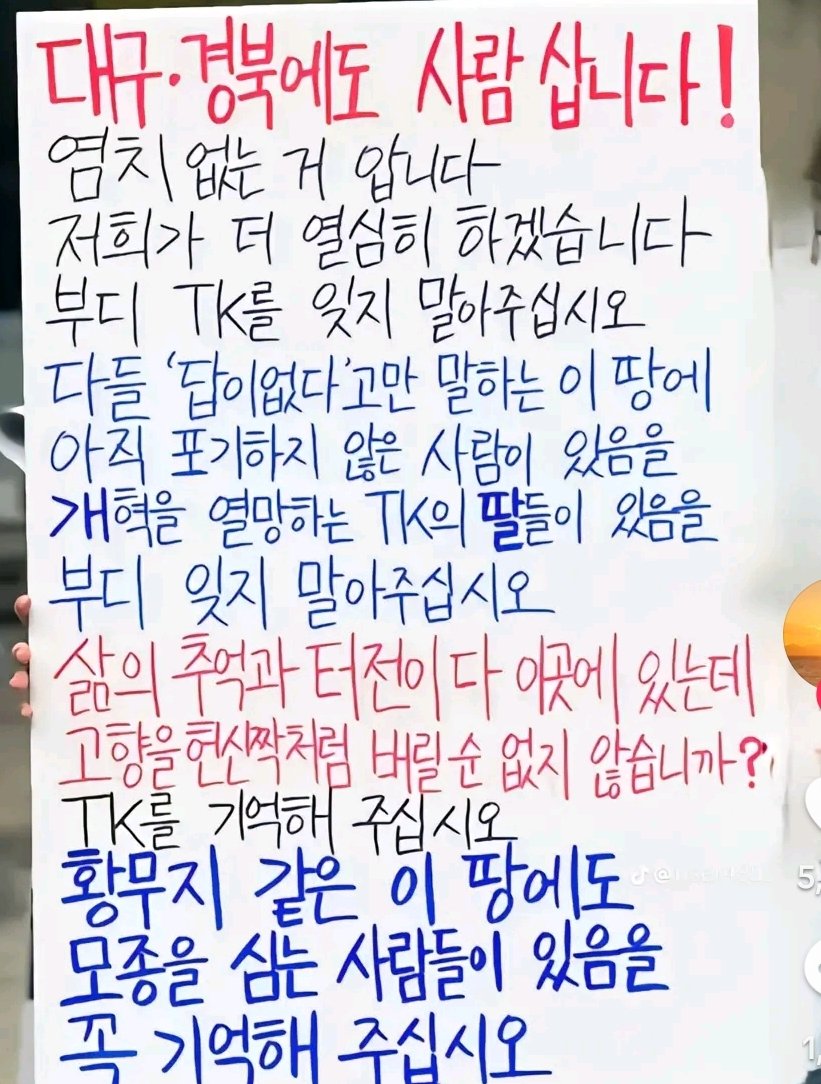 대구·경북에도 사람 삽니다!
염치 없는 거 압니다
저희가 더 열심히 하겠습니다
부디 TK를 잊지 말아주십시오
다들 '답이없다'고만 말하는 이 땅에
아직 포기하지 않은 사람이 있음을
개혁을 열망하는 TK의 딸들이 있음을
부디 잊지 말아주십시오
삶의 추억과 터전이 다 이곳에 있는데
고향을 헌신짝처럼 버릴 순 없지 않습니까?
TK를 기억해 주십시오
황무지 같은 이 땅에도
모종을 심는 사람들이 있음을
꼭 기억해 주십시오